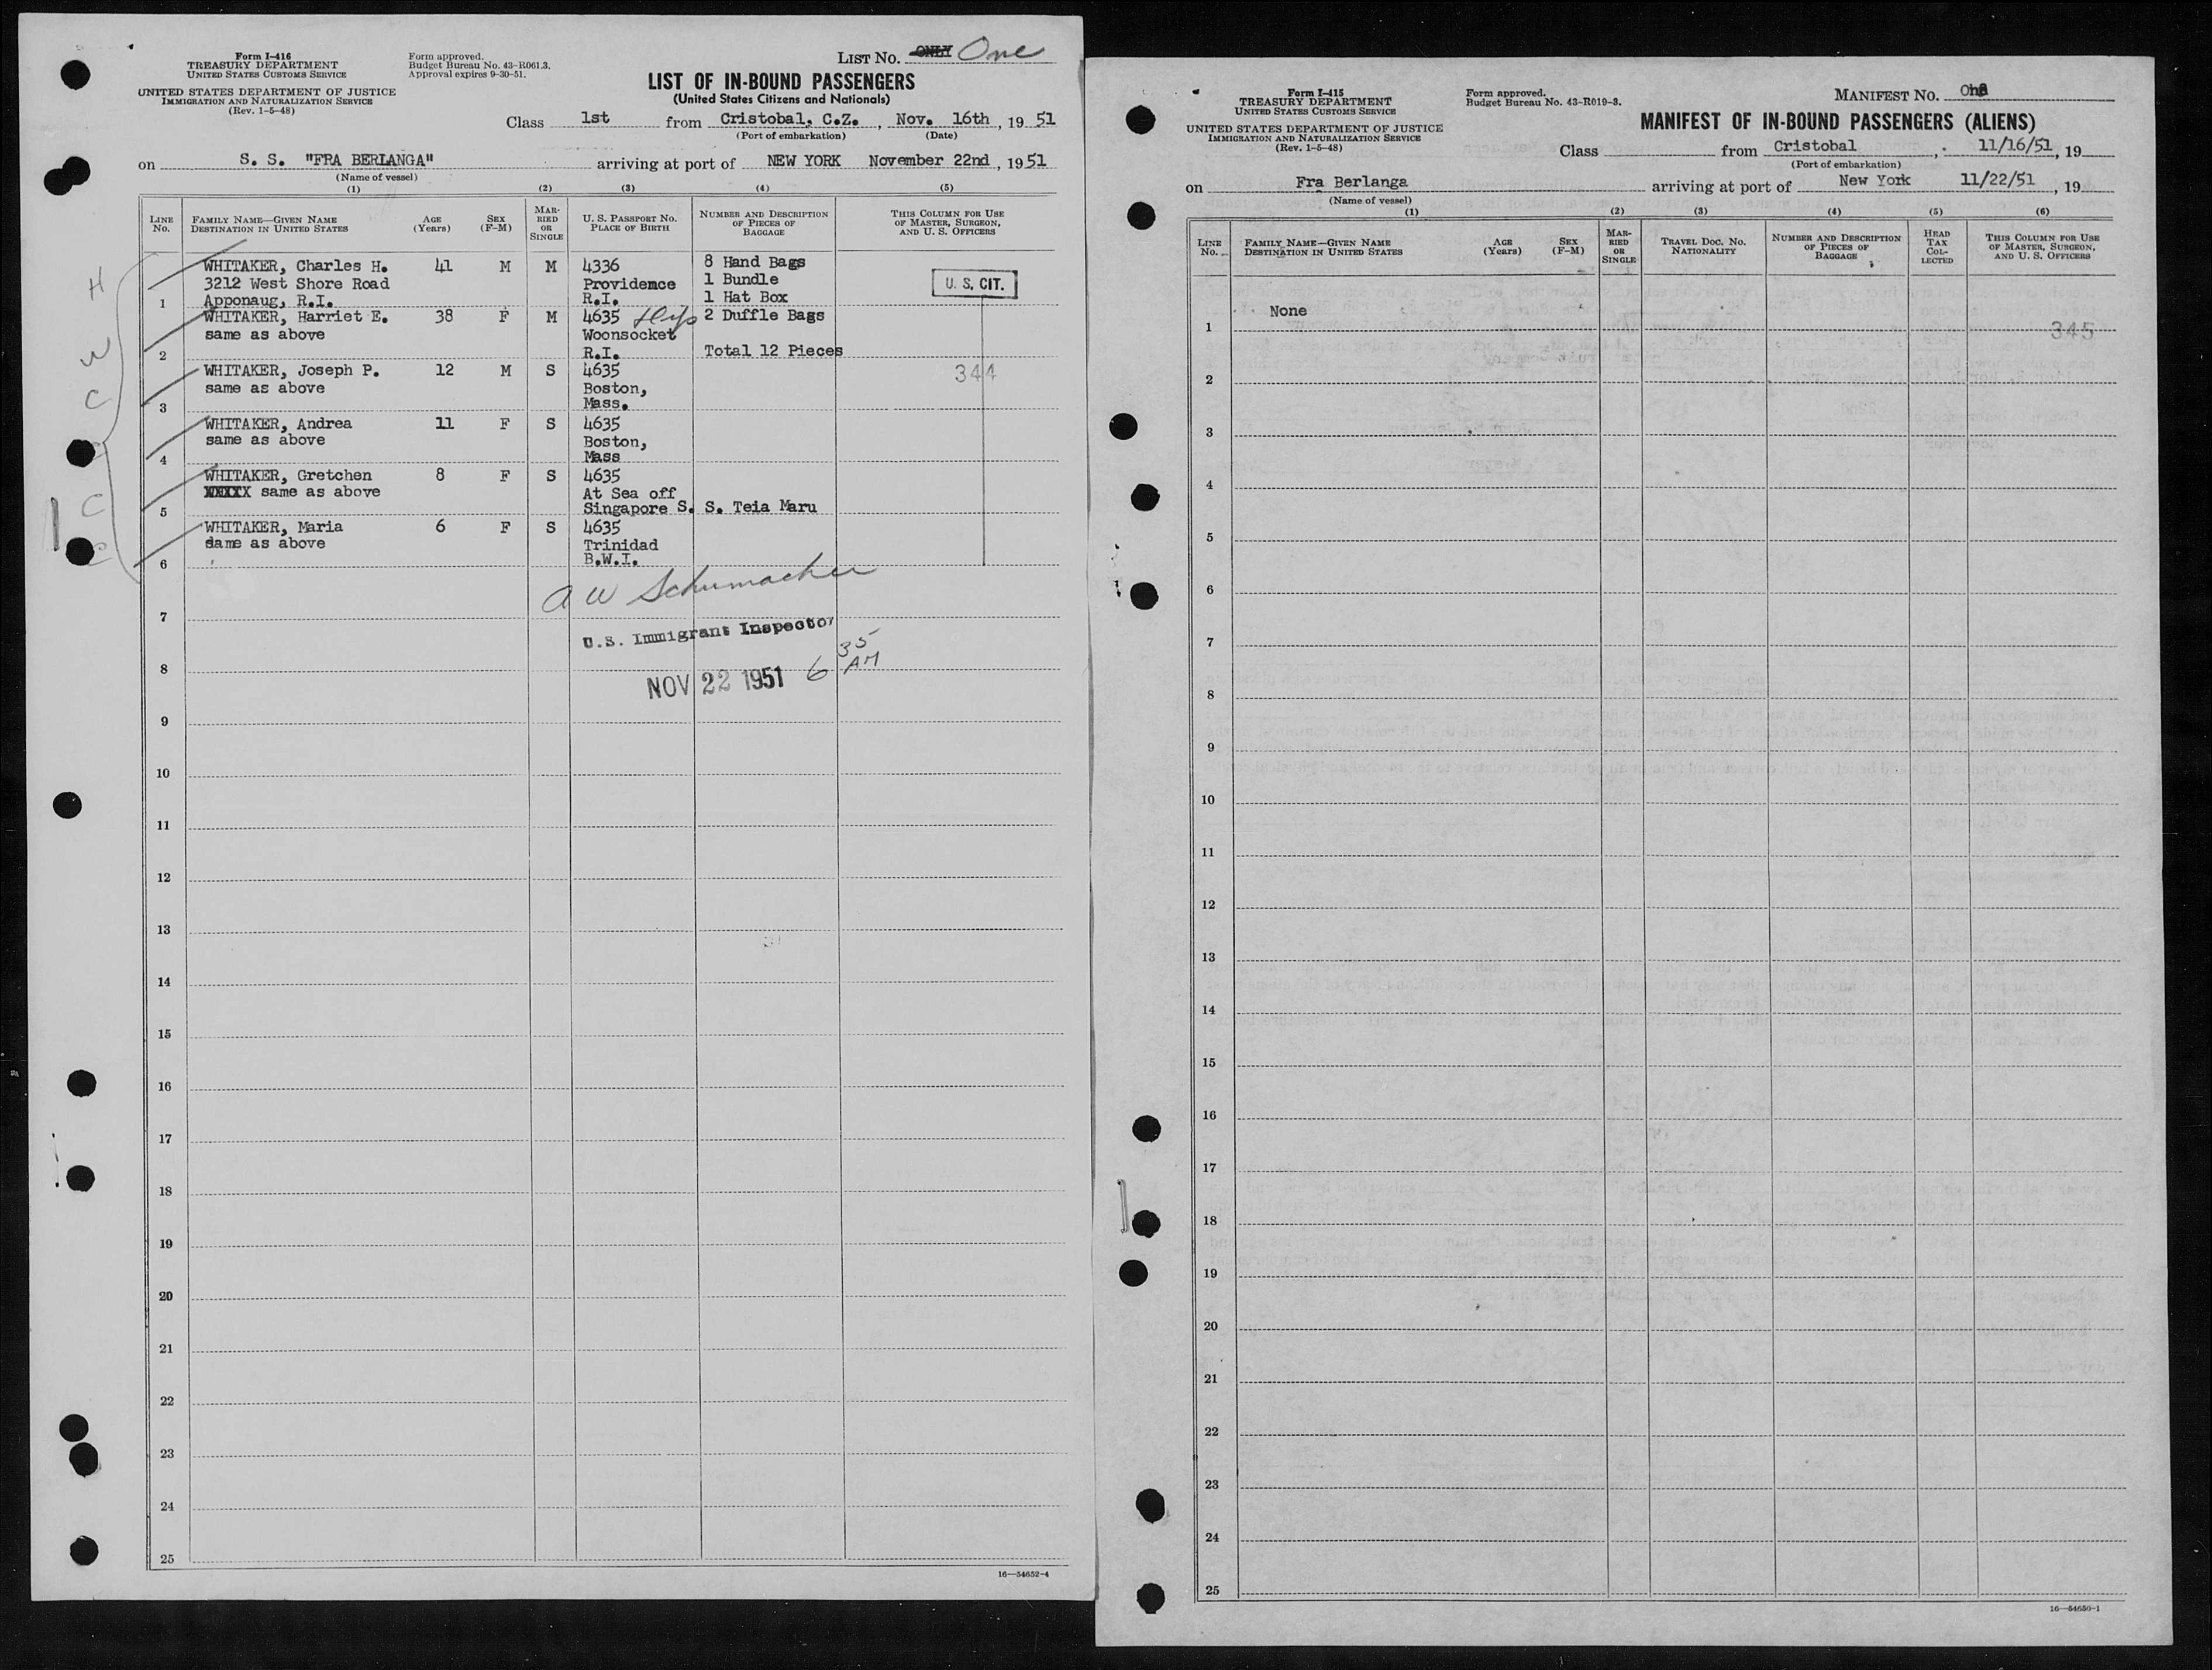 Form I-416
TREASURY DEPARTMENT
UNITED STATES CUSTOMS SERVICE
UNITED STATES DEPARTMENT OF JUSTICE
IMMIGRATION AND NATURALIZATION SERVICE
(Rev. 1-5-48)
Form approved.
Budget Bureau No. 43-R061.3.
Approval expires 9-30-51.
LIST NO. ONLY One
LIST OF IN-BOUND PASSENGERS
(United States Citizens and Nationals)
Class 1st from Cristobal, C.Z. , Nov. 16th , 19 51
(Port of embarkation) (Date)
on S. S. "FRA BERLANGA" arriving at port of NEW YORK November 22nd , 19 51
(Name of vessel)
(1) (2) (3) (4) (5)
LINE No. FAMILY NAME—GIVEN NAME DESTINATION IN UNITED STATES AGE (Years) SEX (F-M) MARRIED OR SINGLE U. S. PASSPORT NO. PLACE OF BIRTH NUMBER AND DESCRIPTION OF PIECES OF BAGGAGE THIS COLUMN FOR USE OF MASTER, SURGEON, AND U. S. OFFICERS
WHITAKER, Charles H. 41 M M 4336 8 Hand Bags
3212 West Shore Road Providence 1 Bundle U. S. CIT.
1 Apponaug, R.I. R.I. 1 Hat Box
WHITAKER, Harriet E. 38 F M 4635 2 Duffle Bags
same as above Woonsocket
2 R.I. Total 12 Pieces
WHITAKER, Joseph P. 12 M S 4635 344
same as above Boston,
3 Mass.
WHITAKER, Andrea 11 F S 4635
same as above Boston,
4 Mass
WHITAKER, Gretchen 8 F S 4635
same as above At Sea off
5 Singapore S. S. Teia Maru
WHITAKER, Maria 6 F S 4635
same as above Trinidad
6 B.W.I.
H
W
C
C
A W Schumacher
7
U.S. Immigrant Inspector
8
NOV 22 1951 6 35 AM
9
10
11
12
13
14
15
16
17
18
19
20
21
22
23
24
25
16—54652-4
Form I-415
TREASURY DEPARTMENT
UNITED STATES CUSTOMS SERVICE
UNITED STATES DEPARTMENT OF JUSTICE
IMMIGRATION AND NATURALIZATION SERVICE
(Rev. 1-5-48)
Form approved.
Budget Bureau No. 43-R019-3.
MANIFEST NO. One
MANIFEST OF IN-BOUND PASSENGERS (ALIENS)
Class from Cristobal , 11/16/51 , 19
(Port of embarkation)
on Fra Berlanga arriving at port of New York 11/22/51 , 19
(Name of vessel)
(1) (2) (3) (4) (5) (6)
LINE No. FAMILY NAME—GIVEN NAME DESTINATION IN UNITED STATES AGE (Years) SEX (F-M) MARRIED OR SINGLE TRAVEL DOC. NO. NATIONALITY NUMBER AND DESCRIPTION OF PIECES OF BAGGAGE HEAD TAX COLLECTED THIS COLUMN FOR USE OF MASTER, SURGEON, AND U. S. OFFICERS
1 None 345
2
3
4
5
6
7
8
9
10
11
12
13
14
15
16
17
18
19
20
21
22
23
24
25
16—54650-1